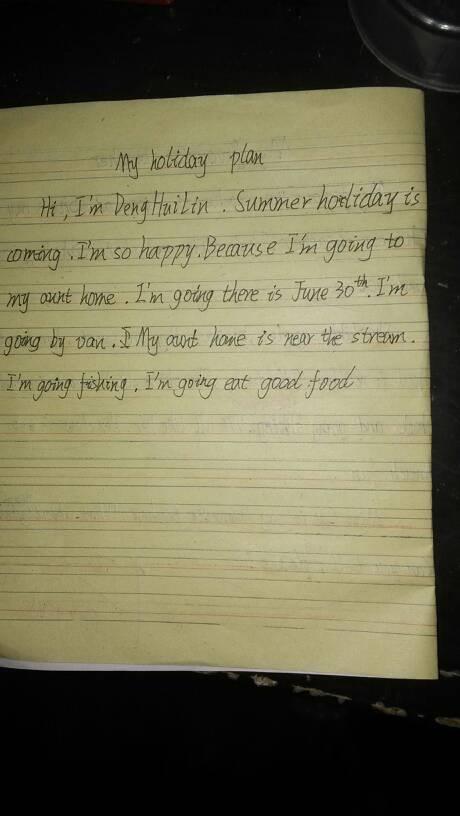 My holiday plan
Hi, I'm Deng Huilin. Summer holiday is
coming. I'm so happy. Because I'm going to
my aunt home. I'm going there is June 30th. I'm
going by van. My aunt home is near the stream.
I'm going fishing. I'm going eat good food